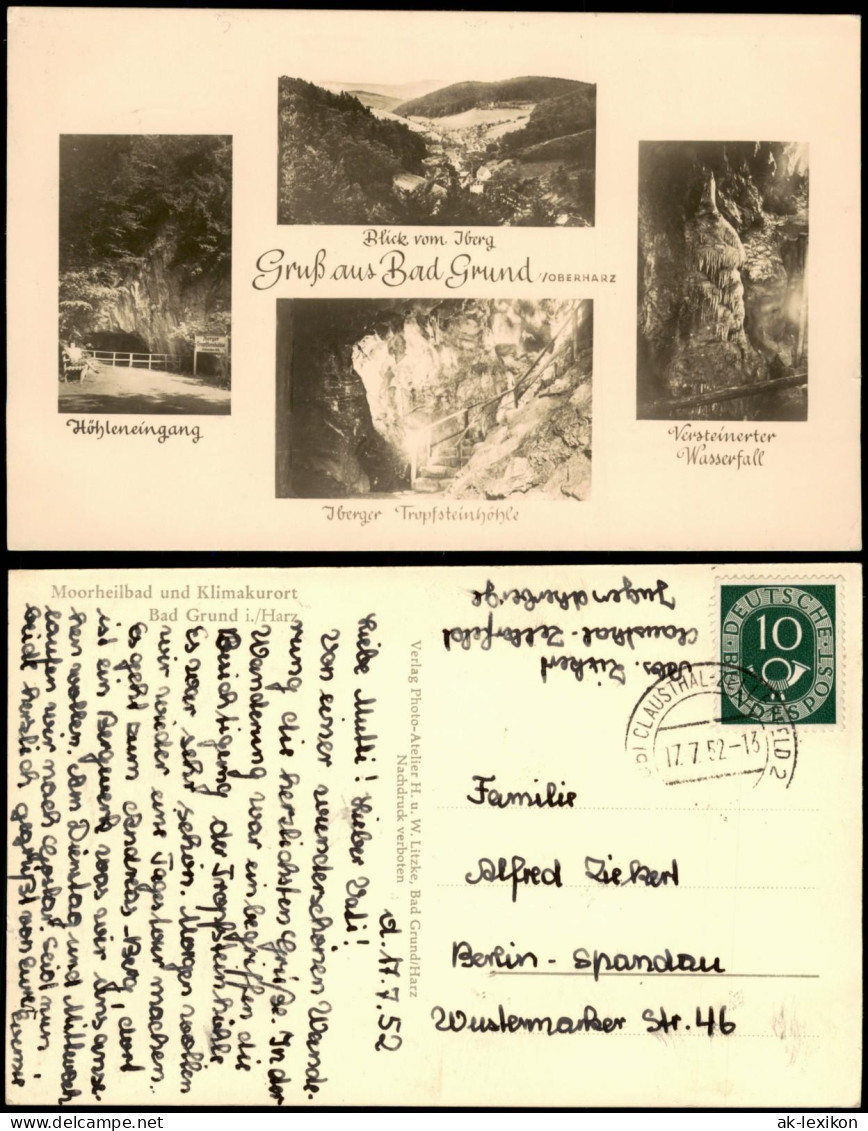 Blick vom Iberg
Gruß aus Bad Grund /OBERHARZ
Höhleneingang
Versteinerter
Wasserfall
Iberger Tropfsteinhöhle
Moorheilbad und Klimakurort
Bad Grund i./Harz
d. 17.7.52
Liebe Mutti! Lieber Vati!
Von einer wunderschönen Wande-
rung die herzlichsten Grüße. In der
Wanderung war einbegriffen die
Besichtigung der Tropfsteinhöhle
Es war sehr schön. Morgen wollen
wir wieder eine Tagestour machen.
Es geht zum Andreas-Berg, dort
ist ein Bergwerk was wir uns anse-
hen wollen. Am Dienstag und Mittwoch
laufen wir nach Goslar. Seid nun
herzlich gegrüßt von Eurem
Verlag Photo-Atelier H. u. W. Litzke, Bad Grund/Harz
Nachdruck verboten
Abs. Ziekert
Clausthal-Zellerfeld
Jugendherberge
DEUTSCHE
BUNDESPOST
10
CLAUSTHAL-ZELLERFELD 2
17.7.52-13
Familie
Alfred Ziekert
Berlin - Spandau
Wustermarker Str. 46
ak-lexikon